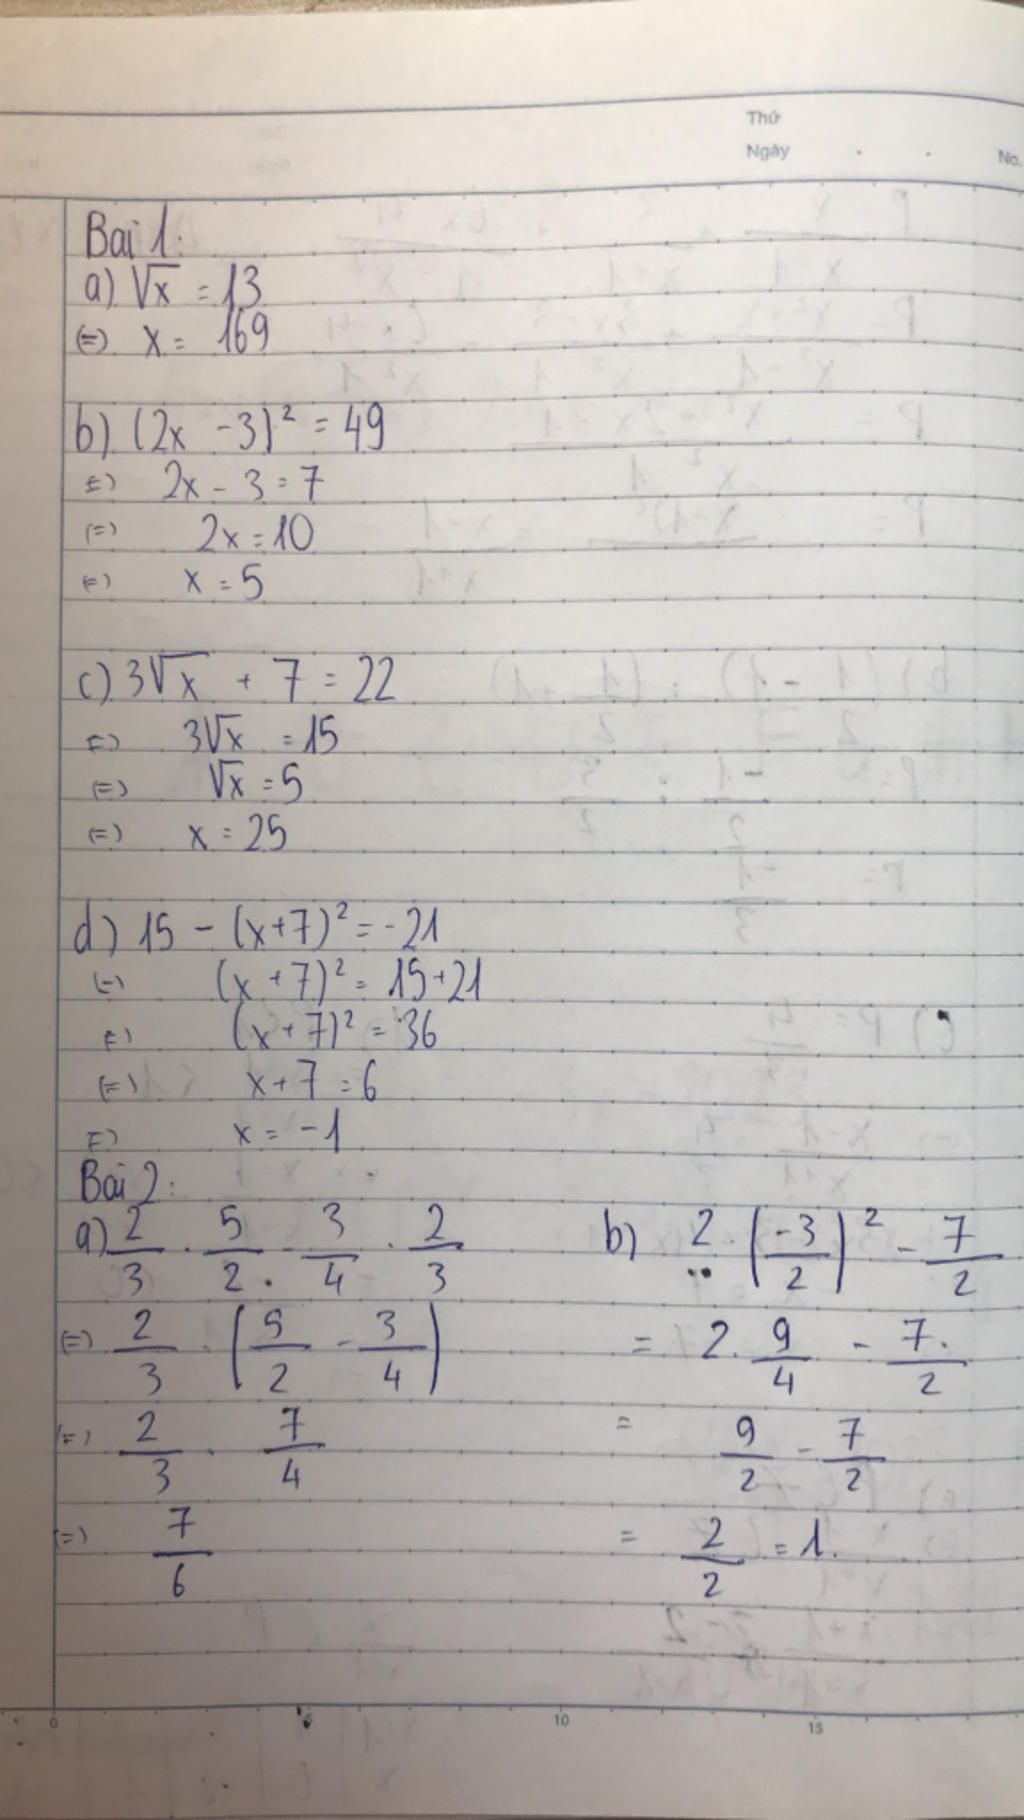 Thứ
Ngày . . No.
Bài 1:
a) √x = 13
(=) x = 169
b) (2x - 3)² = 49
(=) 2x - 3 = 7
(=) 2x = 10
(=) x = 5
c) 3√x + 7 = 22
(=) 3√x = 15
(=) √x = 5
(=) x = 25
d) 15 - (x+7)² = -21
(=) (x + 7)² = 15+21
(=) (x + 7)² = 36
(=) x + 7 = 6
(=) x = -1
Bài 2:
a) 2/3 . 5/2 - 3/4 . 2/3
(=) 2/3 . (5/2 - 3/4)
(=) 2/3 . 7/4
(=) 7/6
b) 2 . (-3/2)² - 7/2
= 2 . 9/4 - 7/2
= 9/2 - 7/2
= 2/2 = 1.
0 5 10 15